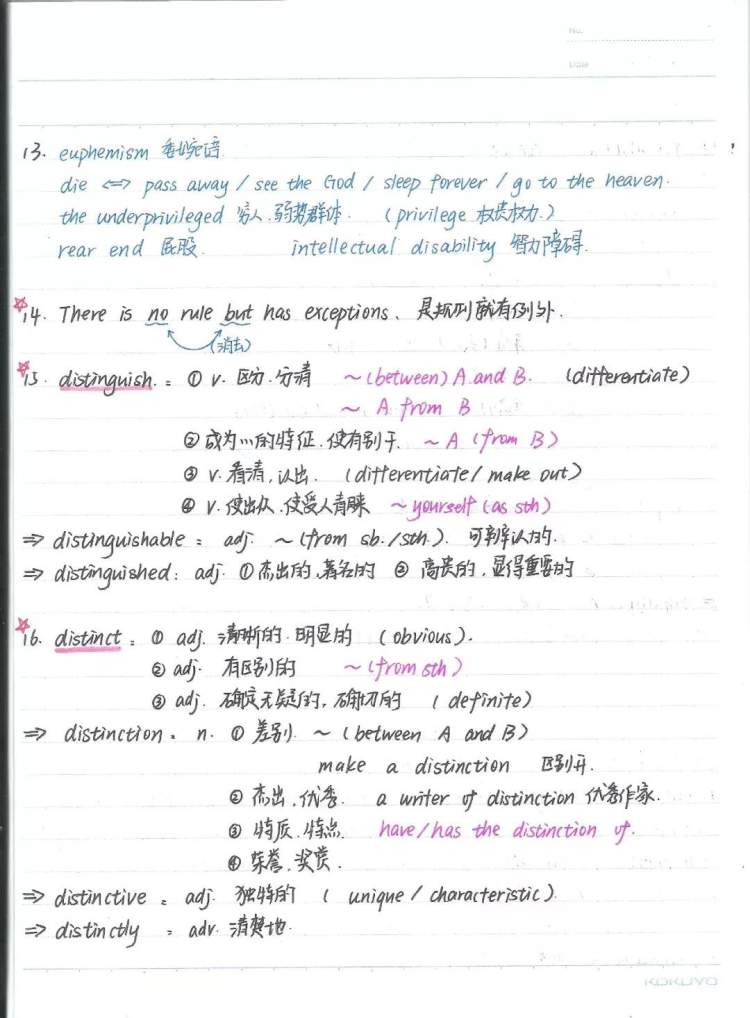 No.
Date
13. euphemism 委婉语
die <=> pass away / see the God / sleep forever / go to the heaven.
the underprivileged 穷人.弱势群体. (privilege 权贵权力.)
rear end 屁股. intellectual disability 智力障碍.
☆14. There is no rule but has exceptions. 是规则就有例外.
(消去)
☆15. distinguish: ① v. 区分.分清 ~(between) A and B. (differentiate)
~ A from B
② 成为…的特征.使有别于. ~ A (from B)
③ v. 看清,认出. (differentiate / make out)
④ v. 使出众.使受人青睐 ~yourself (as sth)
⇒ distinguishable: adj. ~ (from sb./sth.). 可辨认的.
⇒ distinguished: adj. ①杰出的,著名的 ② 高贵的.显得重要的
☆16. distinct: ① adj. 清晰的.明显的 (obvious).
② adj. 有区别的 ~(from sth)
③ adj. 确定无疑的,确切的 (definite)
⇒ distinction: n. ① 差别. ~ (between A and B)
make a distinction 区别开.
② 杰出.优秀. a writer of distinction 优秀作家.
③ 特质.特点. have/has the distinction of.
④ 荣誉.奖赏.
⇒ distinctive: adj. 独特的 (unique / characteristic).
⇒ distinctly: adv. 清楚地.
KOKUYO